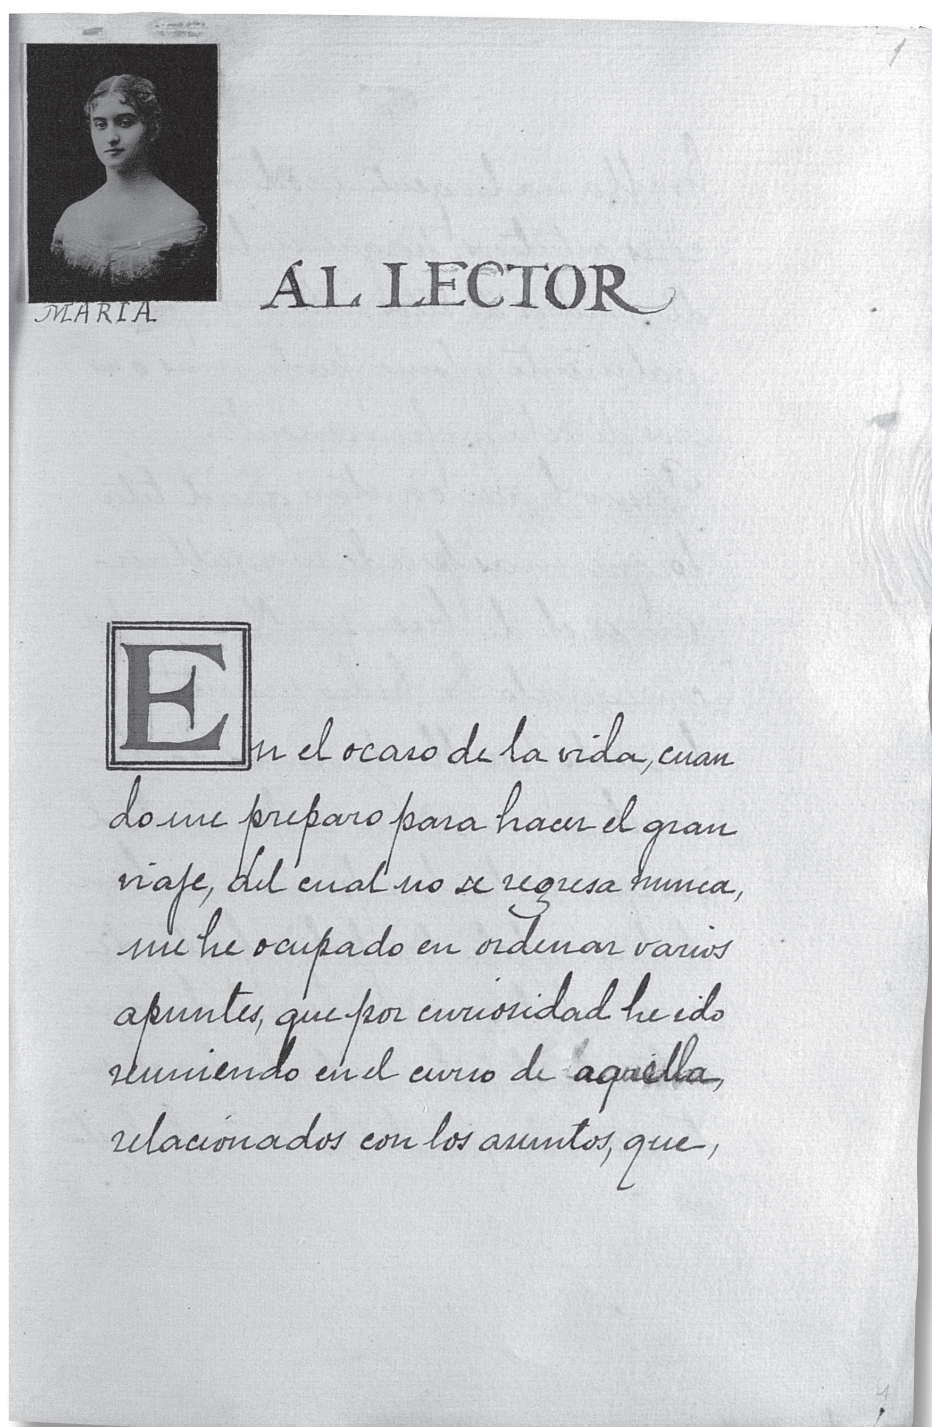 1
MARIA
AL LECTOR
En el ocaso de la vida, cuan
do me preparo para hacer el gran
viaje, del cual no se regresa nunca,
me he ocupado en ordenar varios
apuntes, que por curiosidad he ido
reuniendo en el curso de aquella,
relacionados con los asuntos, que,